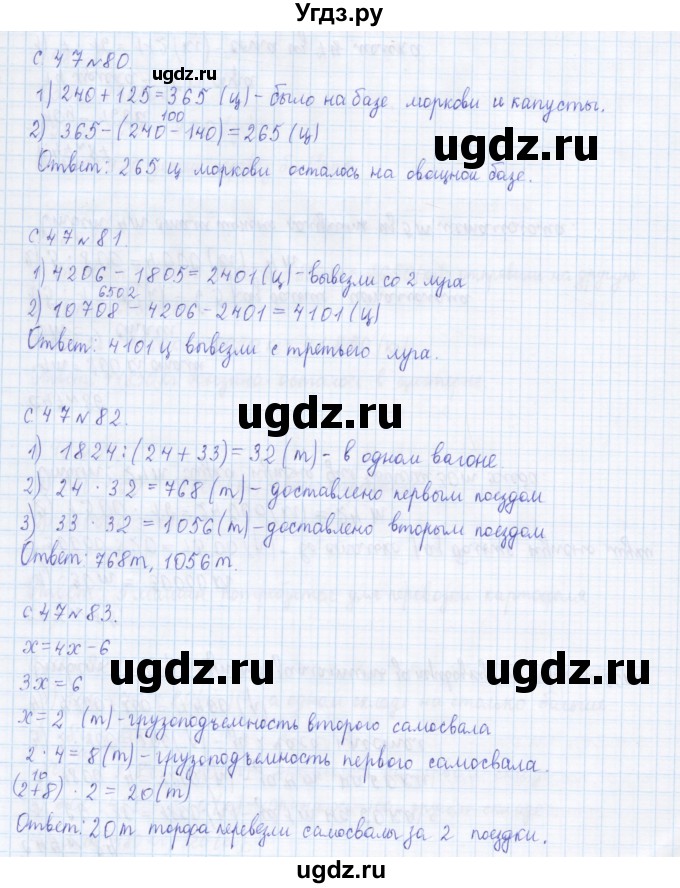 Угдз.ру
с 47 № 80
ugdz.ru
1) 240 + 125 = 365 (ц) - было на базе моркови и капусты.
100
2) 365 - (240 - 140) = 265 (ц)
Ответ: 265 ц моркови осталось на овощной базе.
с 47 № 81.
1) 4206 - 1805 = 2401 (ц) - вывезли со 2 луга
6502
2) 10708 - 4206 - 2401 = 4101 (ц)
Ответ: 4101 ц вывезли с третьего луга.
с 47 № 82.
ugdz.ru
1) 1824 : (24 + 33) = 32 (т) - в одном вагоне.
2) 24 · 32 = 768 (т) - доставлено первым поездом
3) 33 · 32 = 1056 (т) - доставлено вторым поездом
Ответ: 768 т, 1056 т.
с 47 № 83.
x = 4x - 6
ugdz.ru ugdz.ru
3x = 6
x = 2 (т) - грузоподъемность второго самосвала
2 · 4 = 8 (т) - грузоподъемность первого самосвала.
10
(2+8) · 2 = 20 (т)
Ответ: 20 т торфа перевезли самосвалы за 2 поездки.
ugdz.ru